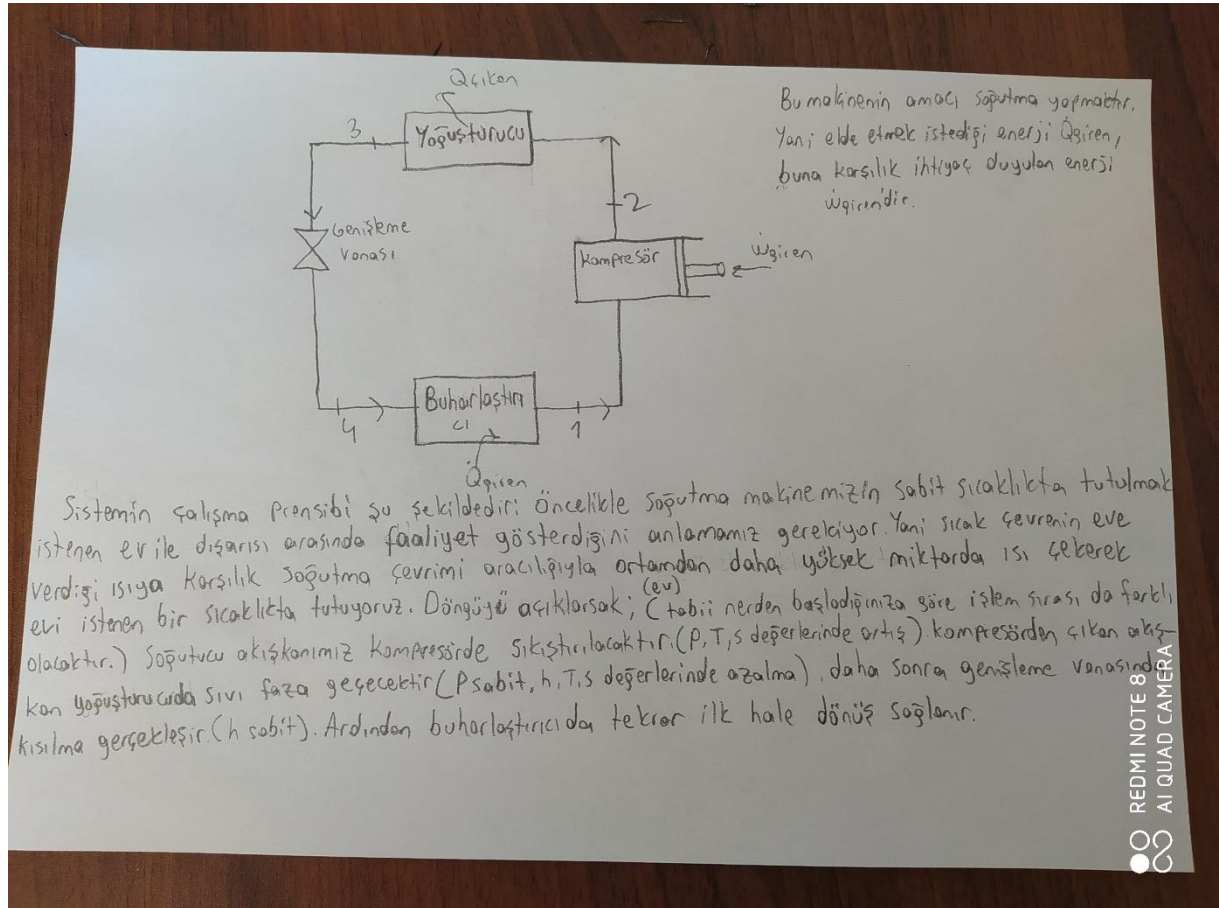 Qçıkan
Yoğuşturucu
3
2
Genişleme
vanası
Kompresör
Ẇgiren
Buharlaştırı
cı
4
1
Q̇giren
Bu makinenin amacı soğutma yapmaktır.
Yani elde etmek istediği enerji Q̇giren,
buna karşılık ihtiyaç duyulan enerji
Ẇgiren'dir.
Sistemin çalışma prensibi şu şekildedir: Öncelikle soğutma makinemizin sabit sıcaklıkta tutulmak
istenen ev ile dışarısı arasında faaliyet gösterdiğini anlamamız gerekiyor. Yani sıcak çevrenin eve
verdiği ısıya karşılık soğutma çevrimi aracılığıyla ortamdan daha yüksek miktarda ısı çekerek
(ev)
evi istenen bir sıcaklıkta tutuyoruz. Döngüyü açıklarsak; (tabii nerden başladığınıza göre işlem sırası da farklı
olacaktır.) Soğutucu akışkanımız kompresörde sıkıştırılacaktır. (P,T,s değerlerinde artış). Kompresörden çıkan akış-
kan yoğuşturucuda sıvı faza geçecektir (P sabit, h,T,s değerlerinde azalma), daha sonra genişleme vanasında
kısılma gerçekleşir. (h sabit). Ardından buharlaştırıcıda tekrar ilk hale dönüş sağlanır.
REDMI NOTE 8
AI QUAD CAMERA